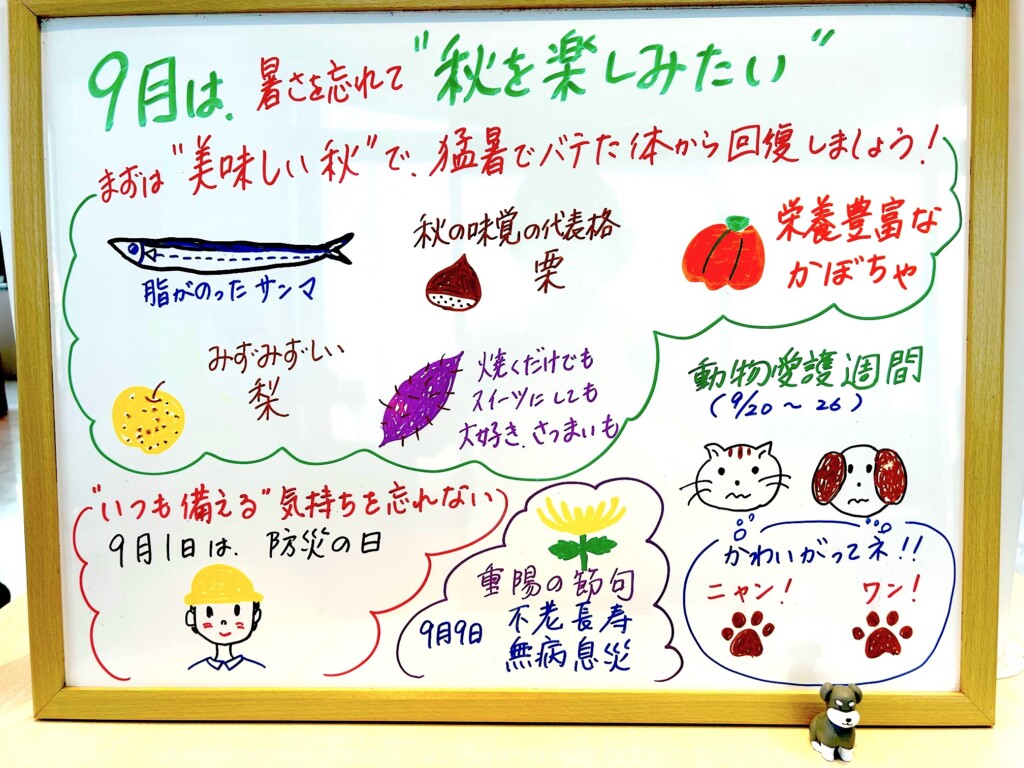 9月は、暑さを忘れて"秋を楽しみたい"
まずは"美味しい秋"で、猛暑でバテた体から回復しましょう!
脂がのったサンマ
秋の味覚の代表格
栗
栄養豊富な
かぼちゃ
みずみずしい
梨
焼くだけでも
スイーツにしても
大好き、さつまいも
動物愛護週間
(9/20~26)
かわいがってネ!!
ニャン!
ワン!
"いつも備える"気持ちを忘れない
9月1日は、防災の日
重陽の節句
9月9日
不老長寿
無病息災